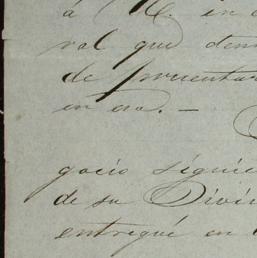 á V. en
val que
de presentar
en esa. —
gocio siguie
de su Divi
entregué en